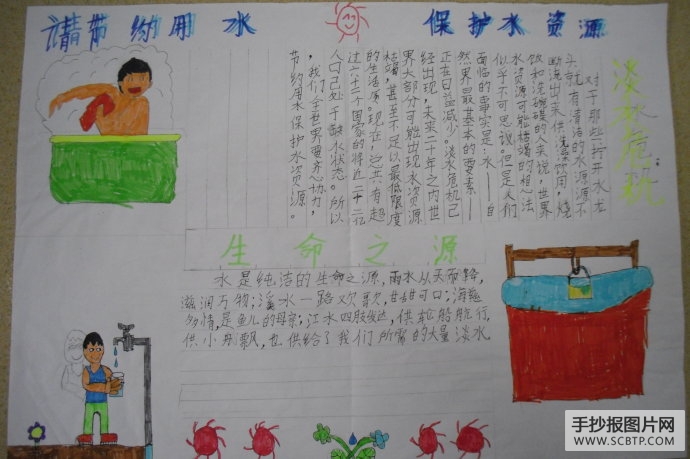 请节约用水 保护水资源
淡水危机
对于那些拧开水龙
头就有清洁的水源源不
断流出来供洗澡饮用、烧
饭和洗碗碟的来说,世界
水资源可能枯竭的想法
似乎不可思议。但是我们
面临的事实是:水——自
然界最基本的要素——
正在日益减少。淡水危机已
经出现,未来二十年之内世
界大部分可能出现水资源
枯竭,甚至不足以最低限度
的生活质。现在,总共有超
过二十二个国家的将近二十二亿
人口已处于缺水状态。所以
,我们全世界要齐心协力,
节约用水保护水资源。
生命之源
水是纯洁的生命之源,雨水从天而降,
滋润万物;溪水一路欢歌,甘甜可口;海
多情,是鱼儿的母亲;江水四肢发达,供轮船航行,
供小舟飘,也供给了我们所需的大量淡水.
手抄报图片网
WWW.SCBTP.COM